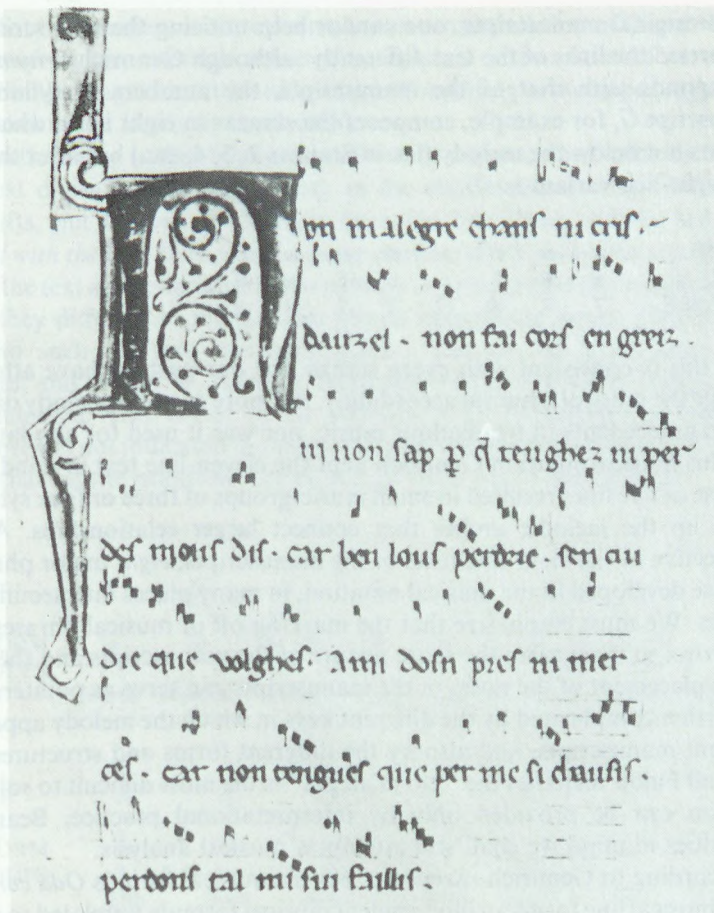 Non malegre chanſ ni criſ ·
dauzel · non fai corſ engreiz
ni non ſap p q̄ tenghez ni per-
deſ mouſ diſ · car ben louſ perdrie ſen cui
die que volgheſ · Ami doſn preſ ni mer-
ceſ · car non tengueſ que per me ſi chauſiſ
perdonſ tal mi ſui failliſ ·